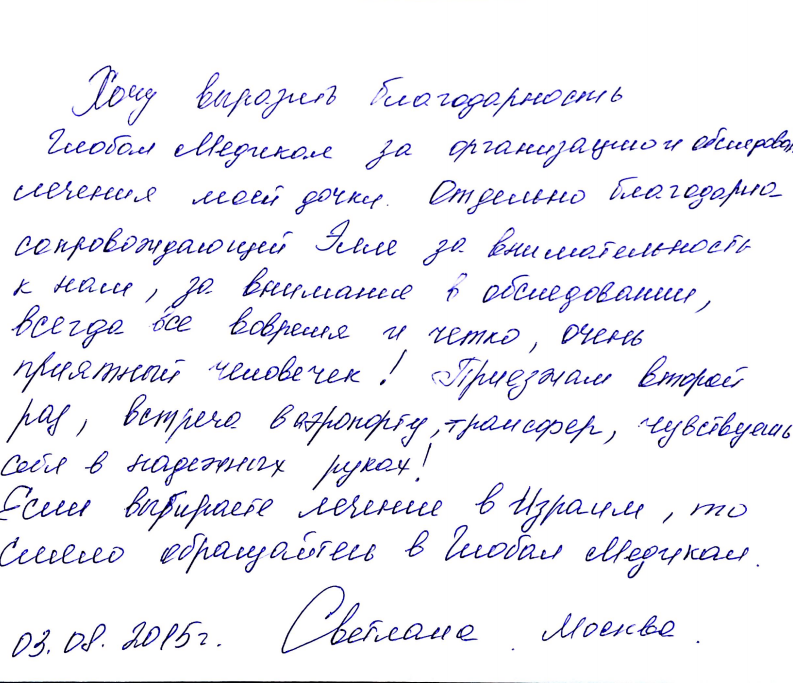 Хочу выразить благодарность
Глобал Медикал за организацию и обследован
лечения моей дочки. Отдельно благодарна
сопровождающей Элле за внимательность
к нам, за внимание в обследовании,
всегда все вовремя и четко, очень
приятный человечек! Приезжаем второй
раз, встреча в аэропорту, трансфер, чувствуешь
себя в надежных руках!
Если выбираете лечение в Израиле, то
смело обращайтесь в Глобал Медикал.
03.08.2015г. Светлана. Москва.